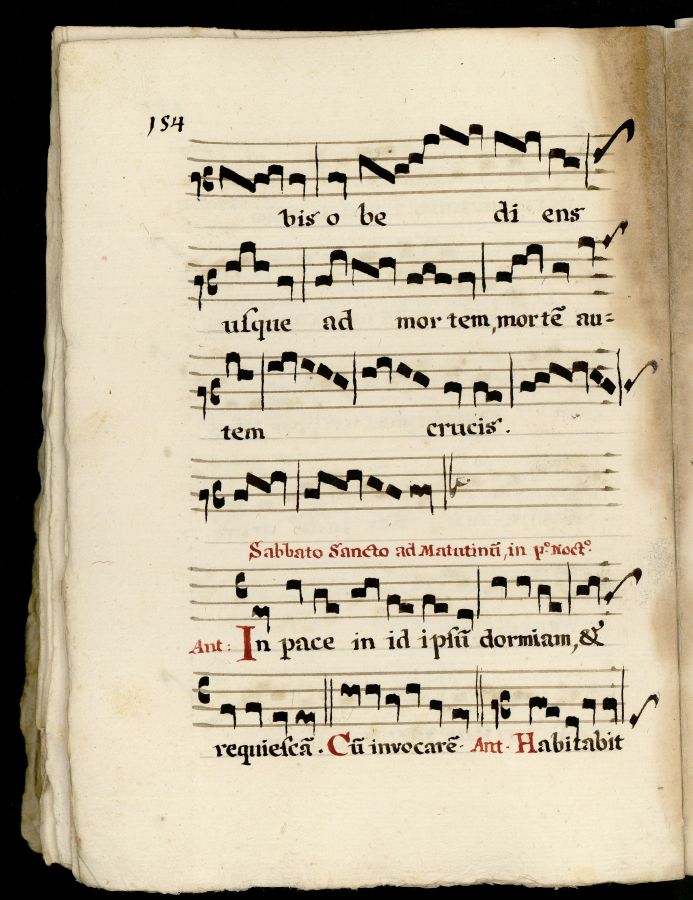 154
bis o be di ens
uſque ad mor tem, mor tē au=
tem crucis.
Sabbato Sancto ad Matutinū, in pº Noctº.
Ant: In pace in id ipſū dormiam, &
requieſcā. Cū invocarē. Ant. Habitabit